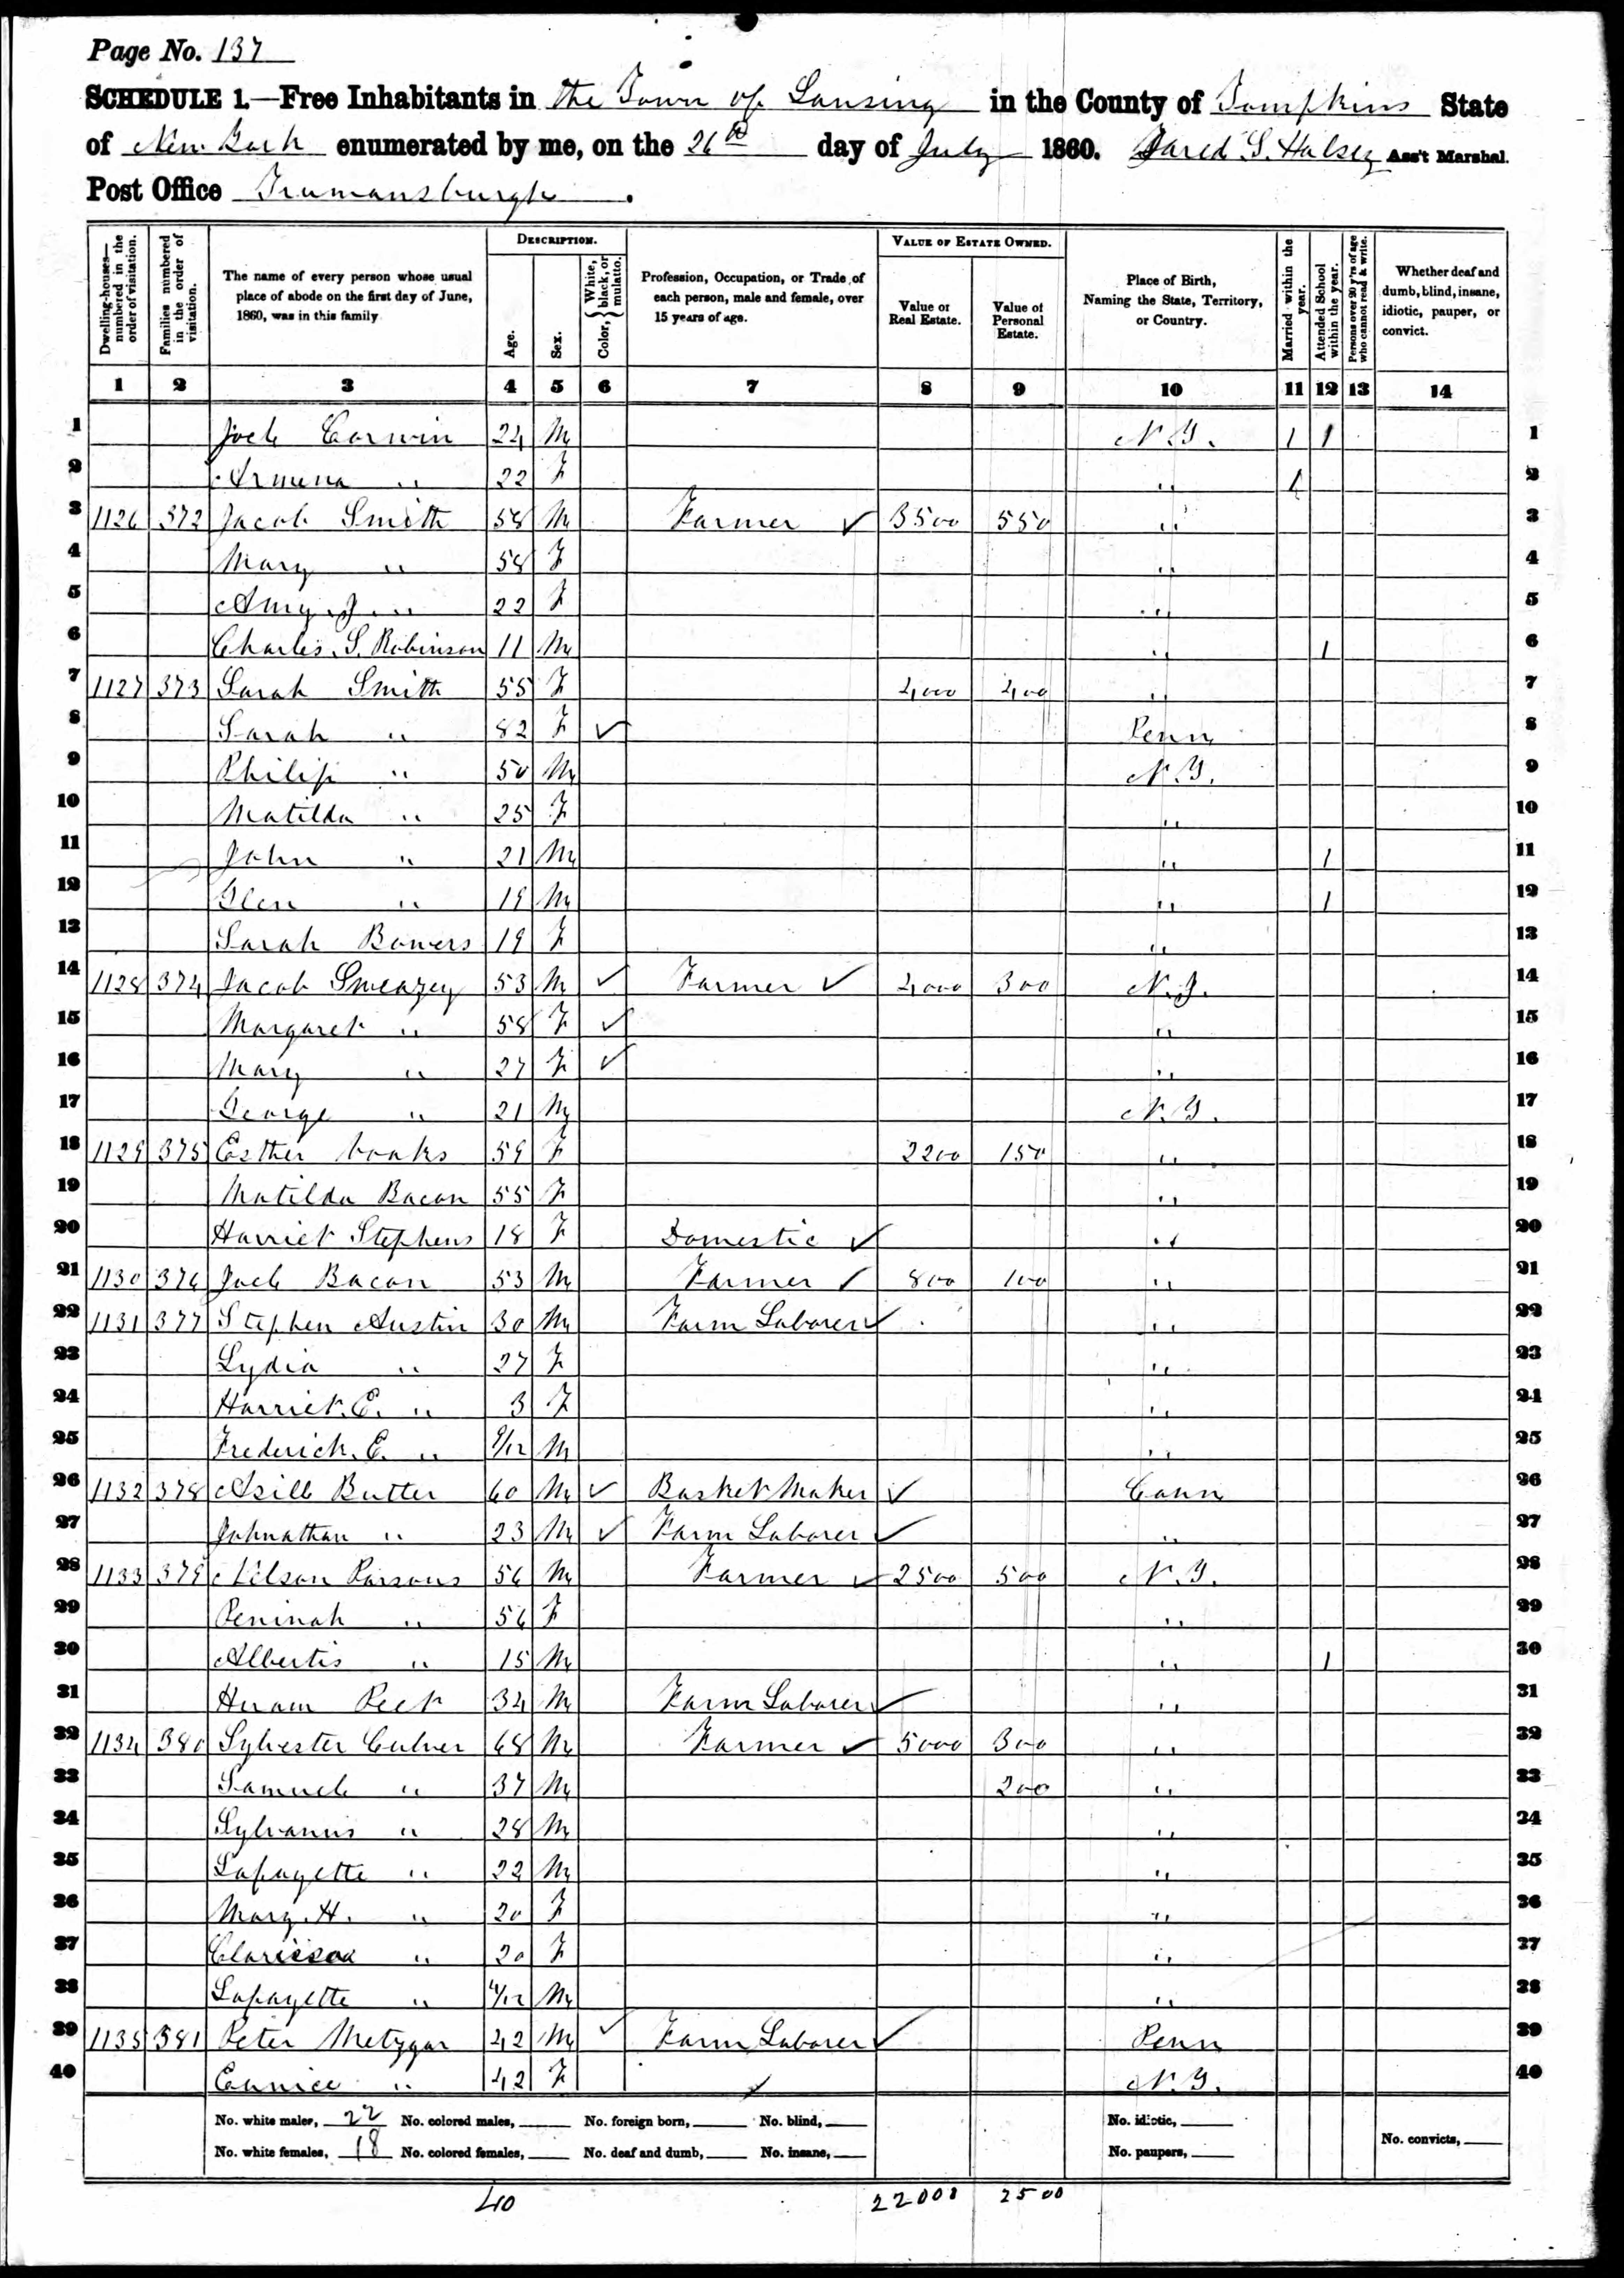 Page No. 137
SCHEDULE 1.—Free Inhabitants in the Town of Lansing in the County of Tompkins State
of New York enumerated by me, on the 26th day of July 1860. Jared S. Halsey Ass't Marshal.
Post Office Trumansburgh.
Dwelling-houses—numbered in the order of visitation.
Families numbered in the order of visitation.
The name of every person whose usual place of abode on the first day of June, 1860, was in this family
DESCRIPTION.
Age.
Sex.
Color, { White, black, or mulatto.
Profession, Occupation, or Trade of each person, male and female, over 15 years of age.
VALUE OF ESTATE OWNED.
Value of Real Estate.
Value of Personal Estate.
Place of Birth, Naming the State, Territory, or Country.
Married within the year.
Attended School within the year.
Persons over 20 y'rs of age who cannot read & write.
Whether deaf and dumb, blind, insane, idiotic, pauper, or convict.
1 2 3 4 5 6 7 8 9 10 11 12 13 14
1 Joel Corwin 24 M N.Y. 1 1 1
2 Armena " 22 F " 1 2
3 1126 372 Jacob Smith 58 M Farmer ✓ 3500 550 " 3
4 Mary " 58 F " 4
5 Amy J. " 22 F " 5
6 Charles S. Robinson 11 M " 1 6
7 1127 373 Sarah Smith 55 F 4000 400 " 7
8 Sarah " 82 F ✓ Penn 8
9 Philip " 50 M N.Y. 9
10 Matilda " 25 F " 10
11 John " 21 M " 1 11
12 Glen " 19 M " 1 12
13 Sarah Bowers 19 F " 13
14 1128 374 Jacob Sweazey 53 M ✓ Farmer ✓ 4000 300 N.J. 14
15 Margaret " 58 F ✓ " 15
16 Mary " 27 F ✓ " 16
17 George " 21 M N.Y. 17
18 1129 375 Esther 59 F 2200 150 " 18
19 Matilda Bacon 55 F " 19
20 Harriet Stephens 18 F Domestic ✓ " 20
21 1130 376 Joel Bacon 53 M Farmer ✓ 800 100 " 21
22 1131 377 Stephen Austin 30 M Farm Laborer ✓ " 22
23 Lydia " 27 F " 23
24 Harriet E. " 3 F " 24
25 Frederick E. " 9/12 M " 25
26 1132 378 Asill Butter 60 M ✓ Basket Maker ✓ Conn 26
27 Johnathan " 23 M ✓ Farm Laborer ✓ " 27
28 1133 379 Nelson Parsons 56 M Farmer ✓ 2500 500 N.Y. 28
29 Peninah " 56 F " 29
30 Albertis " 15 M " 1 30
31 Hiram Peet 34 M Farm Laborer ✓ " 31
32 1134 380 Sylvester Culver 68 M Farmer ✓ 5000 300 " 32
33 Samuel " 37 M 200 " 33
34 Sylvanus " 28 M " 34
35 Lafayette " 22 M " 35
36 Mary H. " 20 F " 36
37 Clarissa " 20 F " 37
38 Lafayette " /12 M " 38
39 1135 381 Peter Metzgar 42 M ✓ Farm Laborer ✓ Penn 39
40 Eunice " 42 F ✓ N.Y. 40
No. white males, 22 No. colored males, No. foreign born, No. blind, No. idiotic,
No. white females, 18 No. colored females, No. deaf and dumb, No. insane, No. paupers, No. convicts,
40 22000 2500